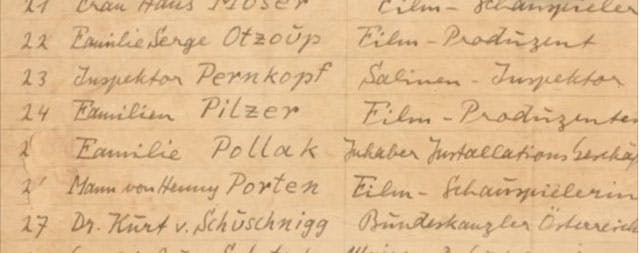 21 Frau Hans Moser Film-Schauspieler
22 Familie Serge Otzoup Film-Produzent
23 Inspektor Pernkopf Salinen-Inspektor
24 Familien Pilzer Film-Produzenten
2 Familie Pollak Inhaber Installations Geschä
2 Mann von Henny Porten Film-Schauspielerin
27 Dr. Kurt v. Schuschnigg Bundeskanzler Österreich